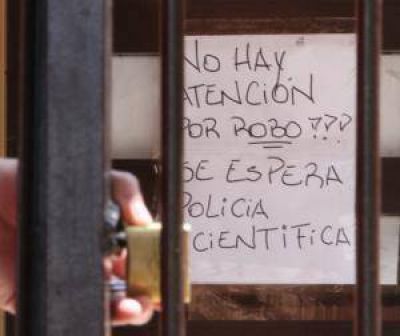 NO HAY
ATENCIÓN
POR ROBO ???
SE ESPERA
POLICIA
CIENTIFICA